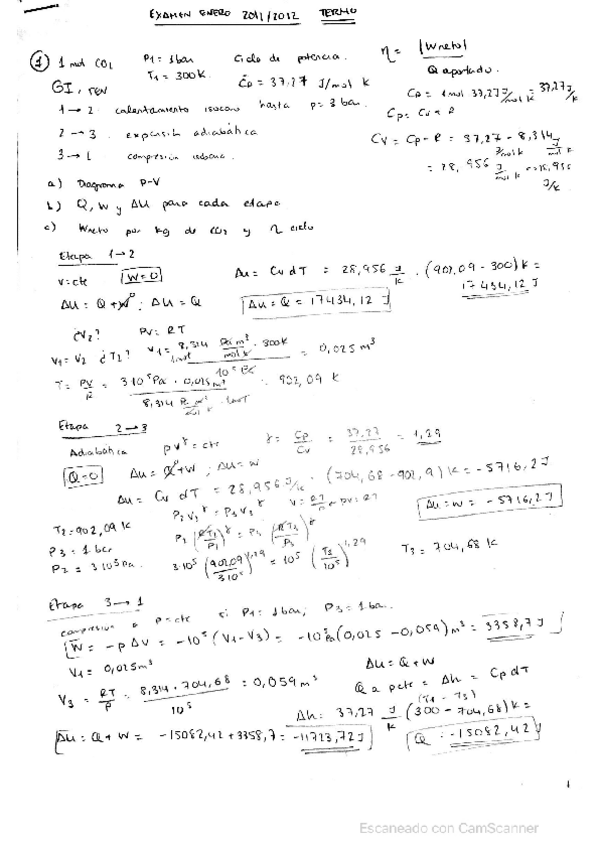 EXAMEN ENERO 2011/2012 TERMO
1 1 mol CO2 P1 = 1 bar Ciclo de potencia. η = |Wneto|
T1 = 300K. Cp = 37,27 J/mol K Q aportado.
GI, rev
Cp = 1 mol 37,27 J/mol K = 37,27 J/K
1 → 2 calentamiento isocoro hasta p = 3 bar.
Cp = Cv + R
2 → 3 expansión adiabática
Cv = Cp - R = 37,27 - 8,314
3 → 1 compresión isobara.
= 28,956 J/mol K
a) Diagrama P-V
b) Q, W y ΔU para cada etapa
c) Wneto por kg de CO2 y η ciclo
Etapa 1→2
v = cte W=0 Δu = Cv dT = 28,956 J/K · (902,09 - 300) K =
17434,12 J
ΔU = Q + W ; ΔU = Q Δu = Q = 17434,12 J
¿V2? PV = RT
V1 = V2 ¿T2? V1 = 8,314 Pa m³/mol K · 300K / 10⁵ Pa = 0,025 m³
T = PV/R = 3·10⁵ Pa · 0,025 m³ / 8,314 = 902,09 K
Etapa 2→3
Adiabática pVᵞ = cte γ = Cp/Cv = 37,27/28,956 = 1,29
Q=0 ΔU = Q + W ; ΔU = W
ΔU = Cv dT = 28,956 J/K · (704,68 - 902,9) K = -5716,2 J
P2 V2ᵞ = P3 V3ᵞ
ΔU = W = -5716,2 J
T2 = 902,09 K
P3 = 1 bar
P2 = 3·10⁵ Pa.
P2 (RT2/P2)ᵞ = P3 (RT3/P3)ᵞ
3·10⁵ (902,09/3·10⁵)^1,29 = 10⁵ (T3/10⁵)^1,29 T3 = 704,68 K
Etapa 3→1
compresión a p = cte si P1 = 1 bar, P3 = 1 bar.
W = -p ΔV = -10⁵ (V1 - V3) = -10⁵ Pa (0,025 - 0,059) m³ = 3358,7 J
V1 = 0,025 m³
ΔU = Q + W
V3 = RT/P = 8,314 · 704,68 / 10⁵ = 0,059 m³
Q a p cte = Δh = Cp dT
(T1 - T3)
Δh = 37,27 J/K (300 - 704,68) K =
ΔU = Q + W = -15082,42 + 3358,7 = -11723,72 J
Q = -15082,42 J
1
Escaneado con CamScanner